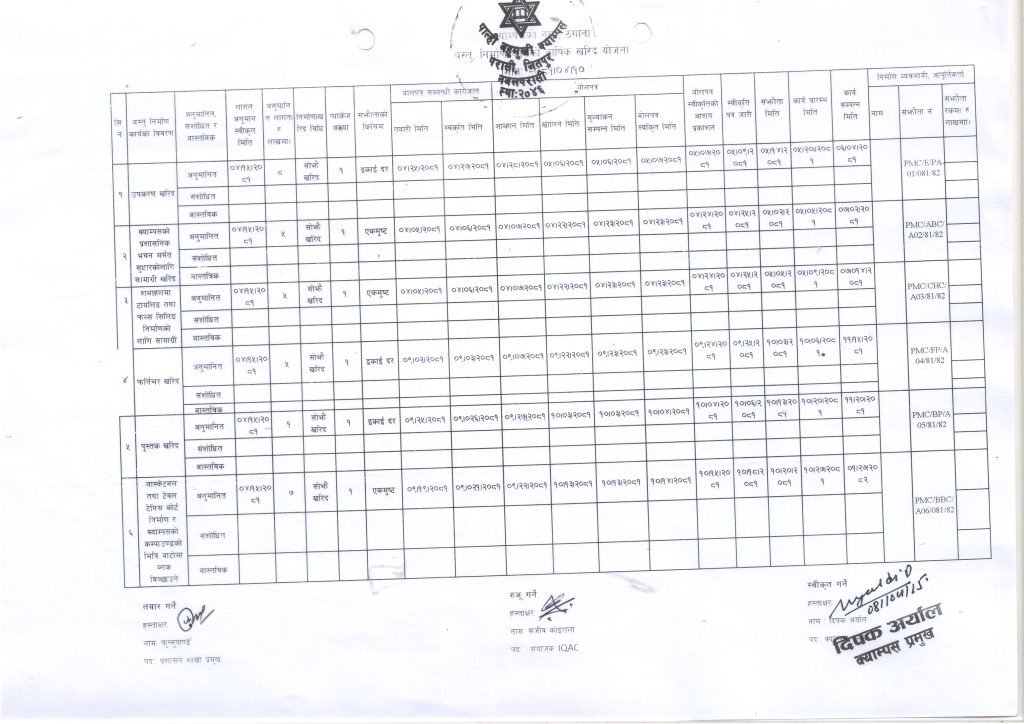 पाल्ही बहुमुखी क्याम्पस
परासी, जितपुर
नवलपरासी
स्था:२०४६
क्याम्पसको
वस्तु, निर्माण वार्षिक खरिद योजना
सि न | वस्तु निर्माण कार्यको विवरण | अनुमानित, संशोधित र वास्तविक | लागत अनुमान स्वीकृत मिति | अनुमानित लागत रु लाखमा। | निर्माण/खरिद विधि | प्याकेज संख्या | सम्झौताको किसिम | बोलपत्र सम्बन्धी कागजात | बोलपत्र | बोलपत्र स्वीकृतिको आशय प्रकाशन | स्वीकृति पत्र जारी | संझौता मिति | कार्य प्रारम्भ मिति | कार्य सम्पन्न मिति | निर्माण व्यवसायी, आपुर्तिकर्ता
तयारी मिति | स्वकृति मिति | आव्हान मिति | खोलिने मिति | मुल्याकन सम्पन्न मिति | बोलपत्र स्वकृति मिति | नाम | संझौता न | संझौता रकम। रु लाखमा।
१ | उपकरण खरिद | अनुमानित | ०४।१५।२०८१ | ८ | सोझै खरिद | १ | इकाई दर | ०४।२५।२०८१ | ०४।२७।२०८१ | ०४।२८।२०८१ | ०५।०६।२०८१ | ०५।०६।२०८१ | ०५।०७।२०८१ | ०५।०७।२०८१ | ०५।०९।२०८१ | ०५।१४।२०८१ | ०५।२०।२०८१ | ०६।०४।२०८१ | PMC/E/PA-01/081/82
संशोधित
वास्तविक
२ | क्याम्पसको प्रशासनिक भवन मर्मत सुधारकोलागि सामाग्री खरिद | अनुमानित | ०४।१५।२०८१ | ५ | सोझै खरिद | १ | एकमुष्ट | ०४।०५।२०८१ | ०४।०६।२०८१ | ०४।०७।२०८१ | ०४।२२।२०८१ | ०४।२३।२०८१ | ०४।२३।२०८१ | ०४।२४।२०८१ | ०४।२५।२०८१ | ०५।०२।२०८१ | ०५।०५।२०८१ | ०७।०२।२०८१ | PMC/ABC/A02/81/82
संशोधित
वास्तविक
३ | टायलिङ तथा फल्स सिलिङ निर्माणको लागि सामाग्री | अनुमानित | ०४।१५।२०८१ | ५ | सोझै खरिद | १ | एकमुष्ट | ०४।०५।२०८१ | ०४।०६।२०८१ | ०४।०७।२०८१ | ०४।२२।२०८१ | ०४।२३।२०८१ | ०४।२३।२०८१ | ०४।२४।२०८१ | ०४।२५।२०८१ | ०५।०५।२०८१ | ०५।०९।२०८१ | ०७।१४।२०८१ | PMC/CHC/A03/81/82
संशोधित
वास्तविक
४ | फर्निचर खरिद | अनुमानित | ०४।१५।२०८१ | ५ | सोझै खरिद | १ | इकाई दर | ०९।०२।२०८१ | ०९।०३।२०८१ | ०९।०७।२०८१ | ०९।२२।२०८१ | ०९।२३।२०८१ | ०९।२३।२०८१ | ०९।२४।२०८१ | ०९।२५।२०८१ | १०।०३।२०८१ | १०।०६।२०८१ | ११।१५।२०८१ | PMC/FP/A04/81/82
संशोधित
वास्तविक
५ | पुस्तक खरिद | अनुमानित | ०४।१५।२०८१ | १ | सोझै खरिद | १ | इकाई दर | ०९।२५।२०८१ | ०९।०२६।२०८१ | ०९।२७।२०८१ | १०।०३।२०८१ | १०।०३।२०८१ | १०।०४।२०८१ | १०।०४।२०८१ | १०।०६।२०८१ | १०।१३।२०८१ | १०।२०।२०८१ | ११।२०।२०८१ | PMC/BP/A05/81/82
संशोधित
वास्तविक
६ | वास्केटबल तथा टेबल टेनिस कोर्ट निर्माण र क्याम्पसको कम्पाउण्डको भित्रि बाटोमा ब्लक विच्छाउने | अनुमानित | ०४।१५।२०८१ | ७ | सोझै खरिद | १ | एकमुष्ट | ०९।१९।२०८१ | ०९।०२१।२०८१ | ०९।२२।२०८१ | १०।१३।२०८१ | १०।१३।२०८१ | १०।१४।२०८१ | १०।१५।२०८१ | १०।१८।२०८१ | १०।२०।२०८१ | १०।२७।२०८१ | ०१।२७।२०८२ | PMC/BBC/A06/081/82
संशोधित
वास्तविक
तयार गर्ने | रुजू गर्ने | स्वीकृत गर्ने
हस्ताक्षर | हस्ताक्षर | हस्ताक्षर 081/04/15
नाम: | नाम: संजीव कोइराला | नाम: दिपक अर्याल
पद: प्रशासन शाखा प्रमुख | पद: संयोजक IQAC
दिपक अर्याल
क्याम्पस प्रमुख